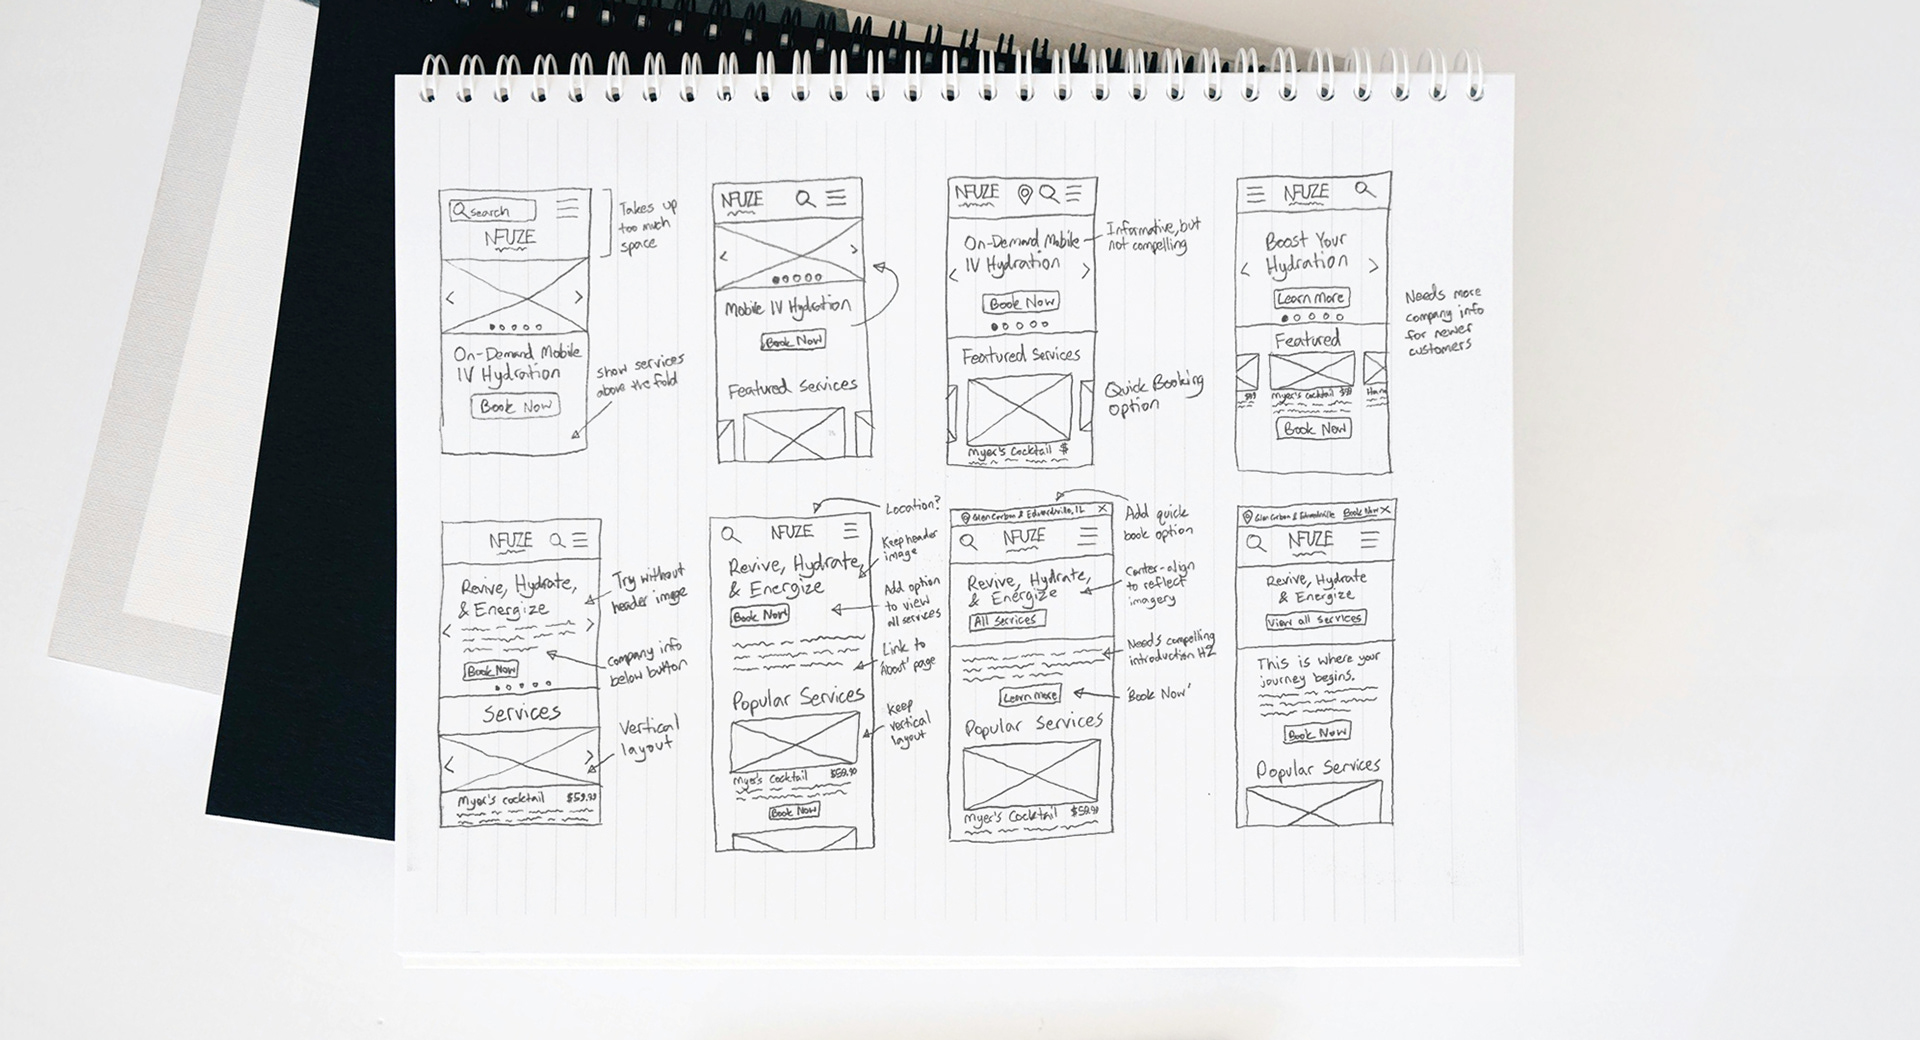 search
NFUZE
On-Demand Mobile
IV Hydration
Book Now
Takes up
too much
space
Show services
above the fold
NFUZE
Mobile IV Hydration
Book Now
Featured Services
NFUZE
On-Demand Mobile
IV Hydration
Book Now
Featured Services
Myer's Cocktail $
Informative, but
not compelling
Quick Booking
option
NFUZE
Boost Your
Hydration
Learn more
Featured
Myer's Cocktail $59
Book Now
Needs more
company info
for newer
customers
NFUZE
Revive, Hydrate,
& Energize
Book Now
Services
Myer's cocktail $59.99
Try without
header image
Company info
below button
Vertical
layout
NFUZE
Revive, Hydrate,
& Energize
Book Now
Popular Services
Myer's Cocktail $59.99
Book Now
Location?
Keep header
image
Add option
to view
all services
Link to
'About' page
Keep
vertical
layout
Glen Carbon & Edwardsville, IL X
NFUZE
Revive, Hydrate,
& Energize
All Services
Learn more
Popular Services
Myer's Cocktail $59.99
Add quick
book option
Center-align
to reflect
imagery
Needs compelling
introduction H2
'Book Now'
Glen Carbon & Edwardsville Book Now X
NFUZE
Revive, Hydrate
& Energize
View all services
This is where your
journey begins.
Book Now
Popular Services